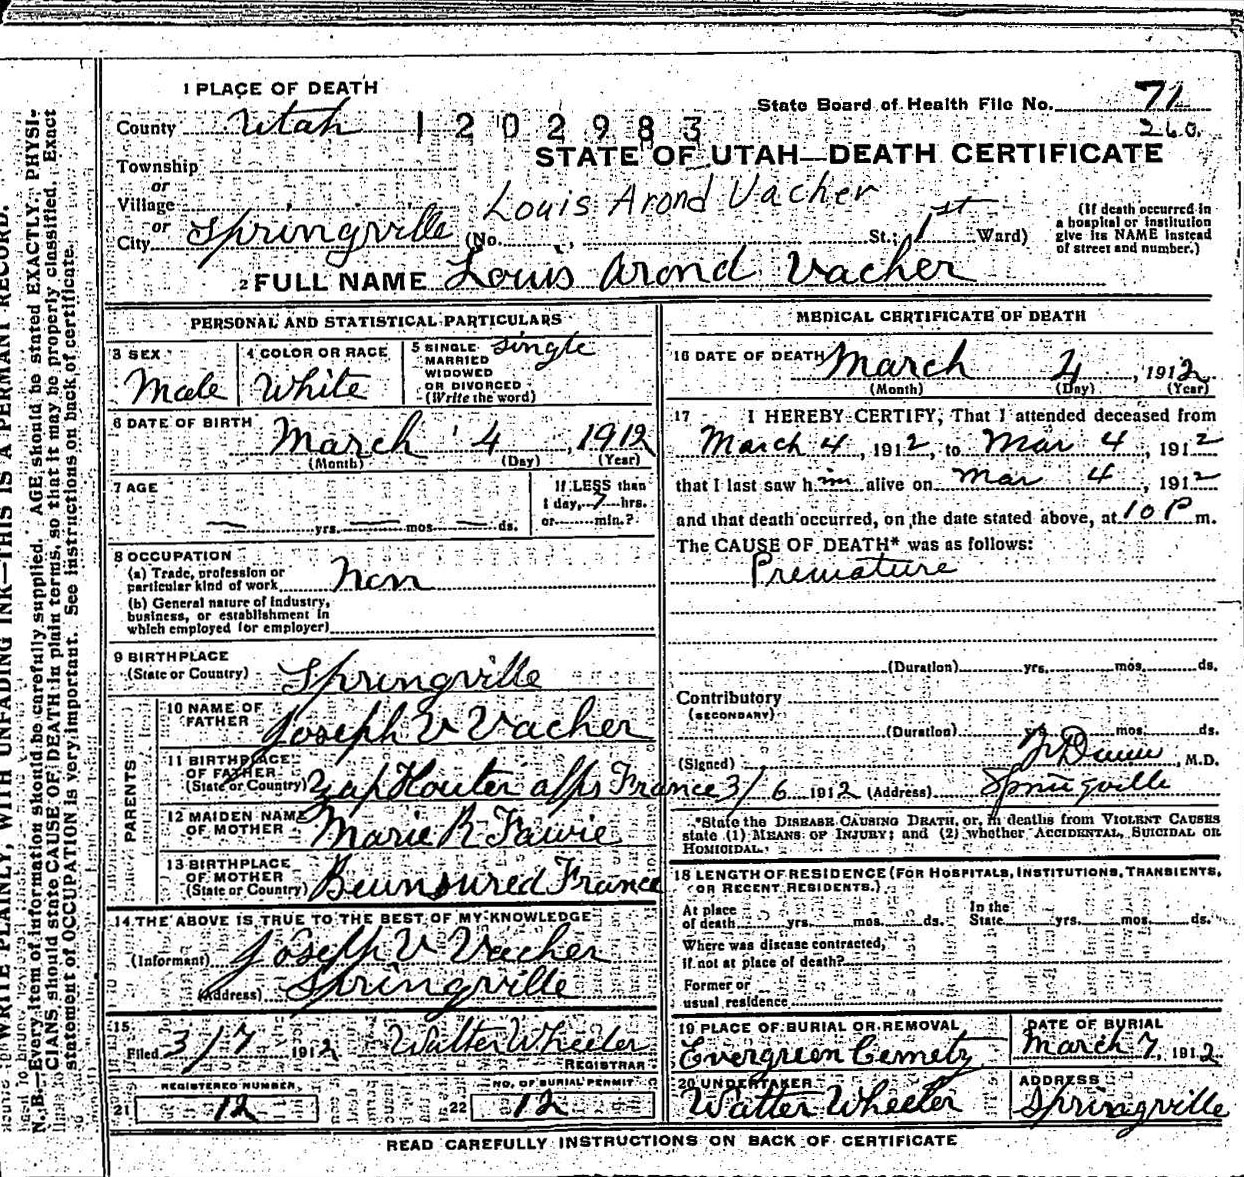 1 PLACE OF DEATH
State Board of Health File No. 71
260
County Utah 1202983
STATE OF UTAH—DEATH CERTIFICATE
Township
or
Village
Louis Arond Vacher
or
City Springville (No. St.; 1st Ward)
(If death occurred in
a hospital or institution
give its NAME instead
of street and number.)
2 FULL NAME Louis Arond Vacher
PERSONAL AND STATISTICAL PARTICULARS
3 SEX
Male
4 COLOR OR RACE
White
5 SINGLE Single
MARRIED
WIDOWED
OR DIVORCED
(Write the word)
6 DATE OF BIRTH
March 4, 1912
(Month) (Day) (Year)
7 AGE
yrs. mos. ds.
If LESS than
1 day, 7 hrs.
or min.?
8 OCCUPATION
(a) Trade, profession or
particular kind of work non
(b) General nature of Industry,
business, or establishment in
which employed (or employer)
9 BIRTHPLACE
(State or Country) Springville
PARENTS
10 NAME OF
FATHER Joseph V Vacher
11 BIRTHPLACE
OF FATHER
(State or Country) alps France
12 MAIDEN NAME
OF MOTHER Marie R
13 BIRTHPLACE
OF MOTHER
(State or Country) France
14 THE ABOVE IS TRUE TO THE BEST OF MY KNOWLEDGE
(Informant) Joseph V Vacher
(Address) Springville
15
Filed 3/7 1912 Walter Wheeler
REGISTRAR
REGISTERED NUMBER
21 12
NO. OF BURIAL PERMIT
22 12
MEDICAL CERTIFICATE OF DEATH
16 DATE OF DEATH March 4, 1912
(Month) (Day) (Year)
17 I HEREBY CERTIFY, That I attended deceased from
March 4, 1912, to Mar 4, 1912
that I last saw him alive on Mar 4, 1912
and that death occurred, on the date stated above, at 10 P m.
The CAUSE OF DEATH* was as follows:
Premature
(Duration) yrs. mos. ds.
Contributory
(SECONDARY)
(Duration) yrs. mos. ds.
(Signed) , M.D.
3/6 1912 (Address) Springville
*State the DISEASE CAUSING DEATH, or, in deaths from VIOLENT CAUSES
state (1) MEANS OF INJURY; and (2) whether ACCIDENTAL, SUICIDAL OR
HOMICIDAL.
18 LENGTH OF RESIDENCE (FOR HOSPITALS, INSTITUTIONS, TRANSIENTS,
OR RECENT RESIDENTS.)
At place
of death yrs. mos. ds.
In the
State yrs. mos. ds.
Where was disease contracted,
if not at place of death?
Former or
usual residence
19 PLACE OF BURIAL OR REMOVAL
Evergreen Cemety
DATE OF BURIAL
March 7, 1912
20 UNDERTAKER
Walter Wheeler
ADDRESS
Springville
READ CAREFULLY INSTRUCTIONS ON BACK OF CERTIFICATE
WRITE PLAINLY, WITH UNFADING INK—THIS IS A PERMANT RECORD.
N. B.—Every item of information should be carefully supplied. AGE should be stated EXACTLY. PHYSI-
CIANS should state CAUSE OF DEATH in plain terms, so that it may be properly classified. Exact
statement of OCCUPATION is very important. See instructions on back of certificate.